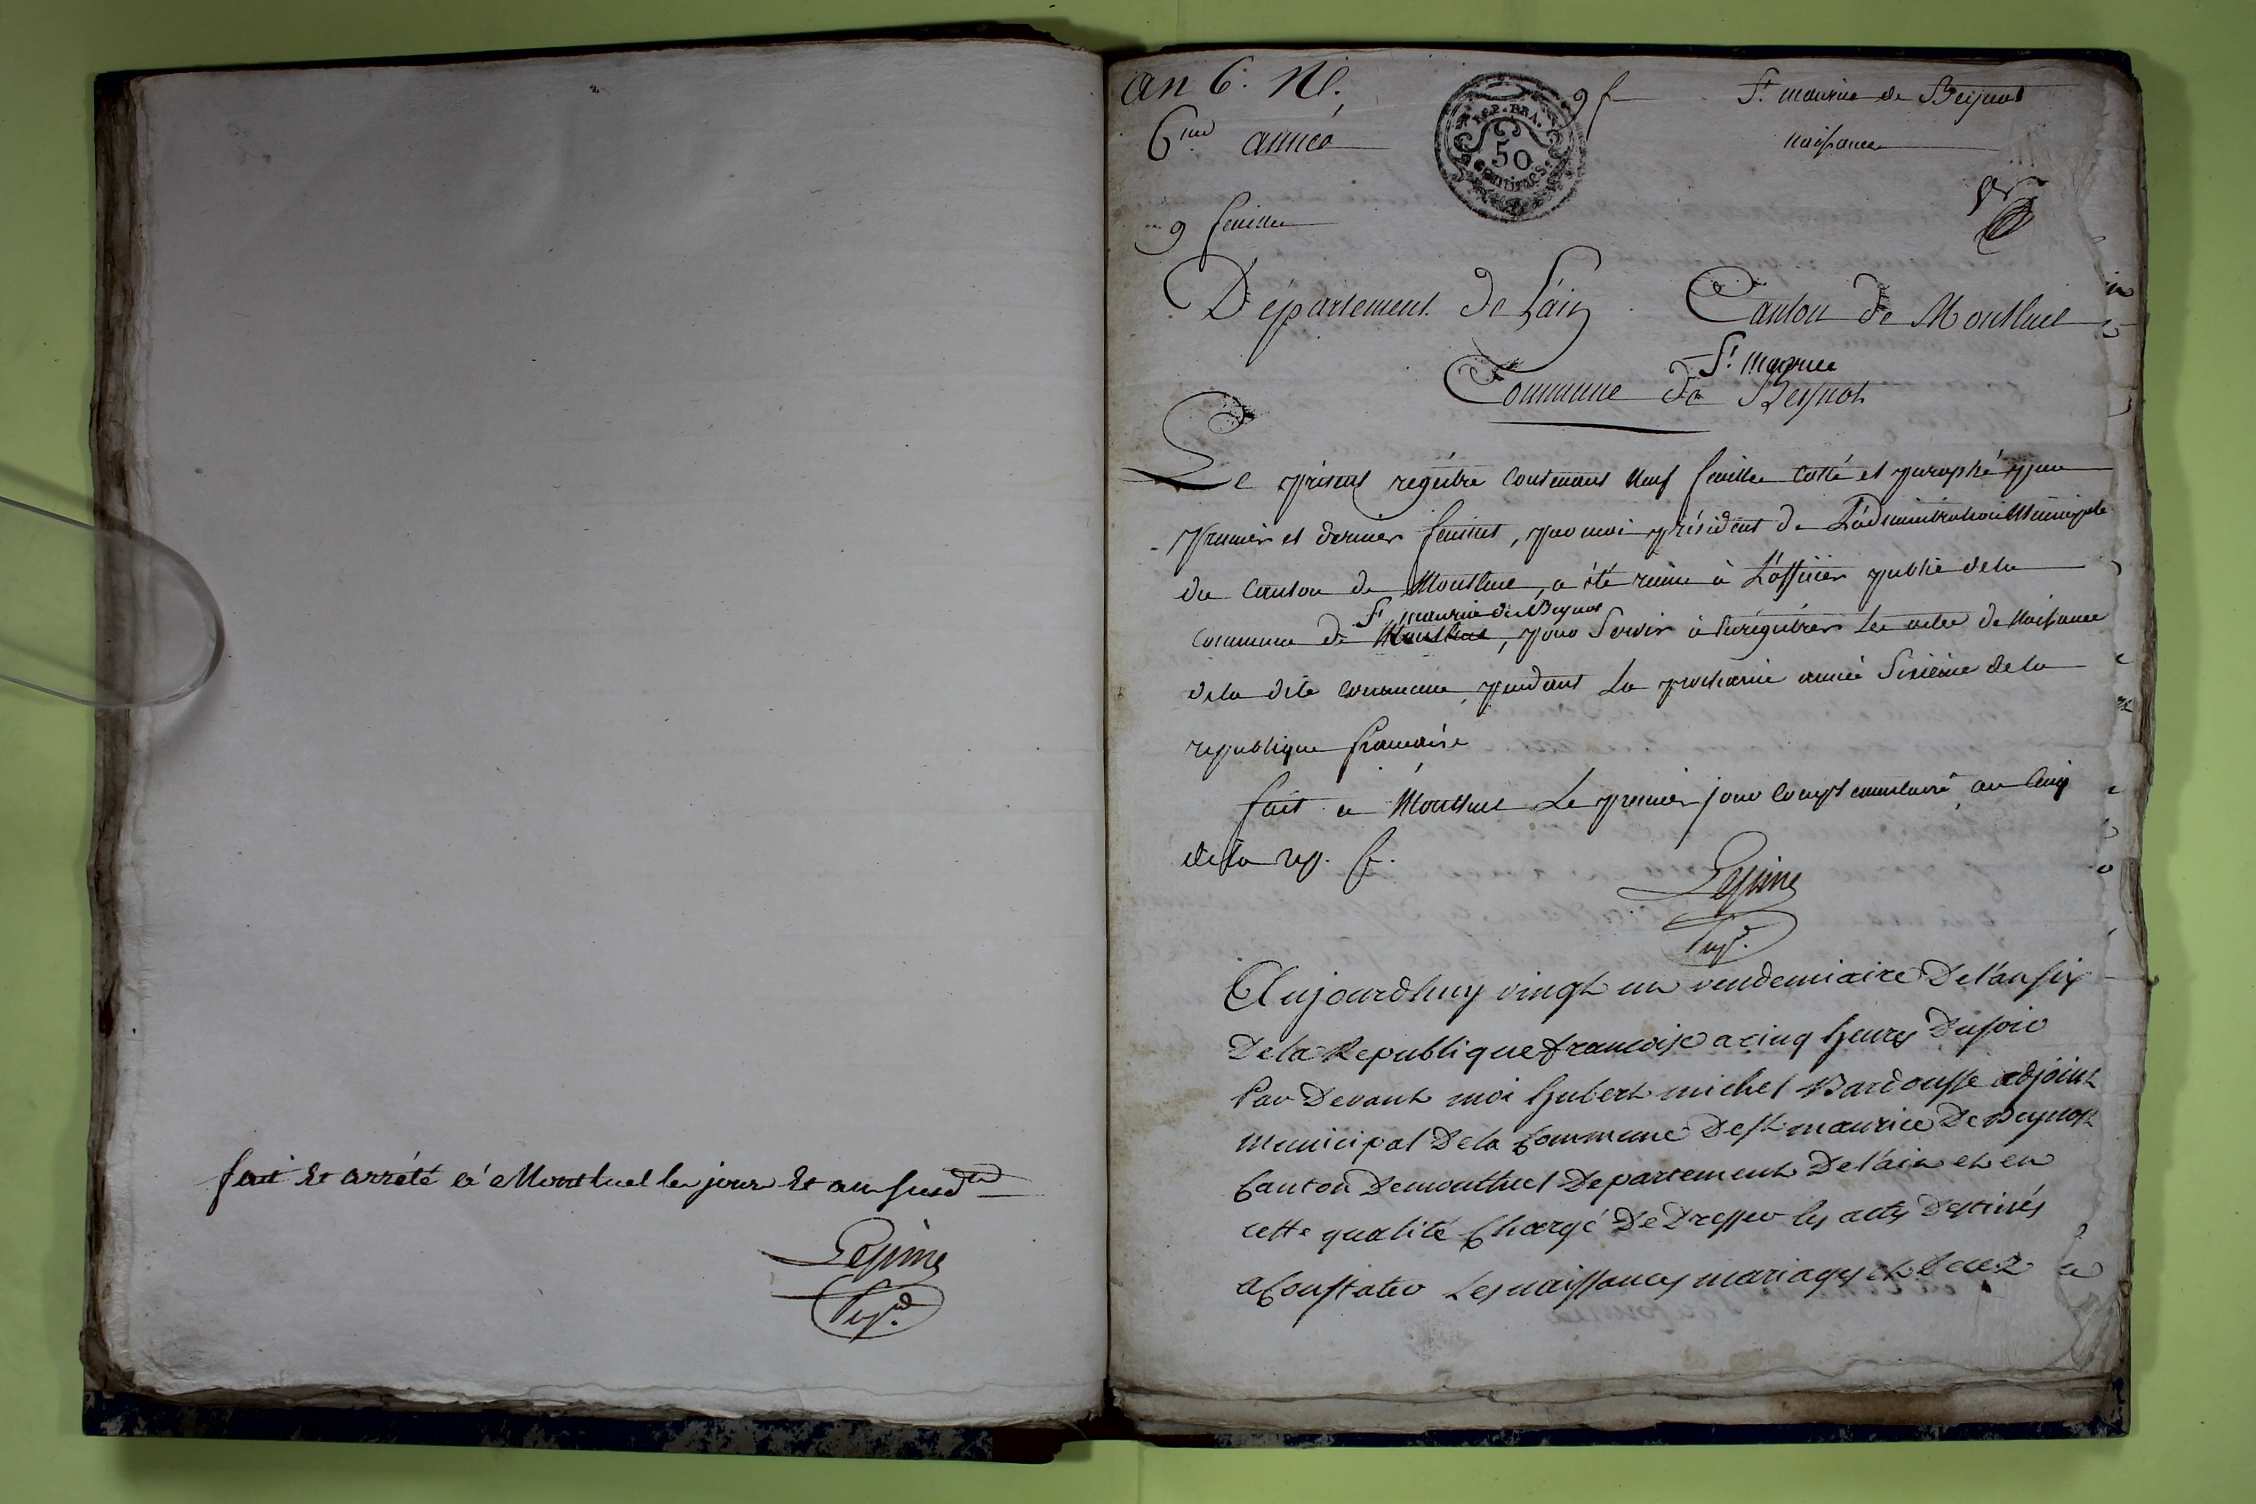 fait et arrêté à Montluel le jour et an susd
Lepine
Presd.
an 6. N.
6me année
9 f
St maurice de Beynost
naissance
REP. FRA.
50
CENTIMES
9 feuilles
Département de L'ain Canton de Montluel
St maurice
Commune de Beynost
Le présent régistre contenant neuf feuilles cotté et paraphé par
premier et dernier feuillet, par moi président de L'administration Municipale
du Canton de Montluel, a été remis à L'officier public de la
St maurice de Beynost
commune de Montluel, pour Servir à Enrégistrer Les actes de Naissance
de la dite commune pendant La prochaine année Sixieme de la
republique francaise
fait a Montluel Le premier jour complementaire an Cinq
de la rep. f.
Lepine
Presd.
Aujourdhuy vingt un vendemiaire De l'an six
De la Republique francoise a cinq heures Du soir
Par Devant moi hubert michel Bardousse adjoint
municipal De la Commune De St maurice De Beynost
Canton De montluel Departement De l'ain et en
cette qualité Chargé De Dresser les actes Destinés
a Constater Les naissances mariages et Decez